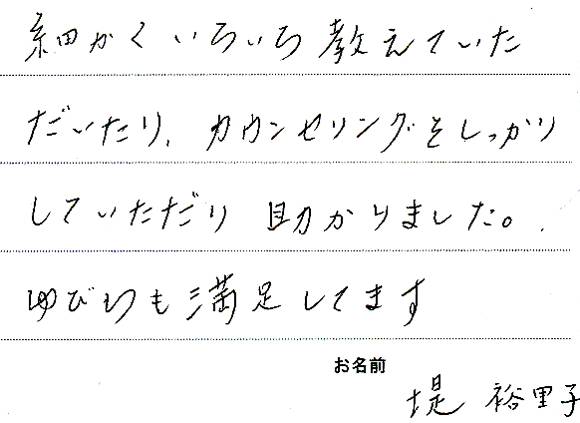 細かくいろいろ教えていた
だいたり、カウンセリングをしっかり
していただり助かりました。
ゆびわも満足してます
お名前
堤 裕里子